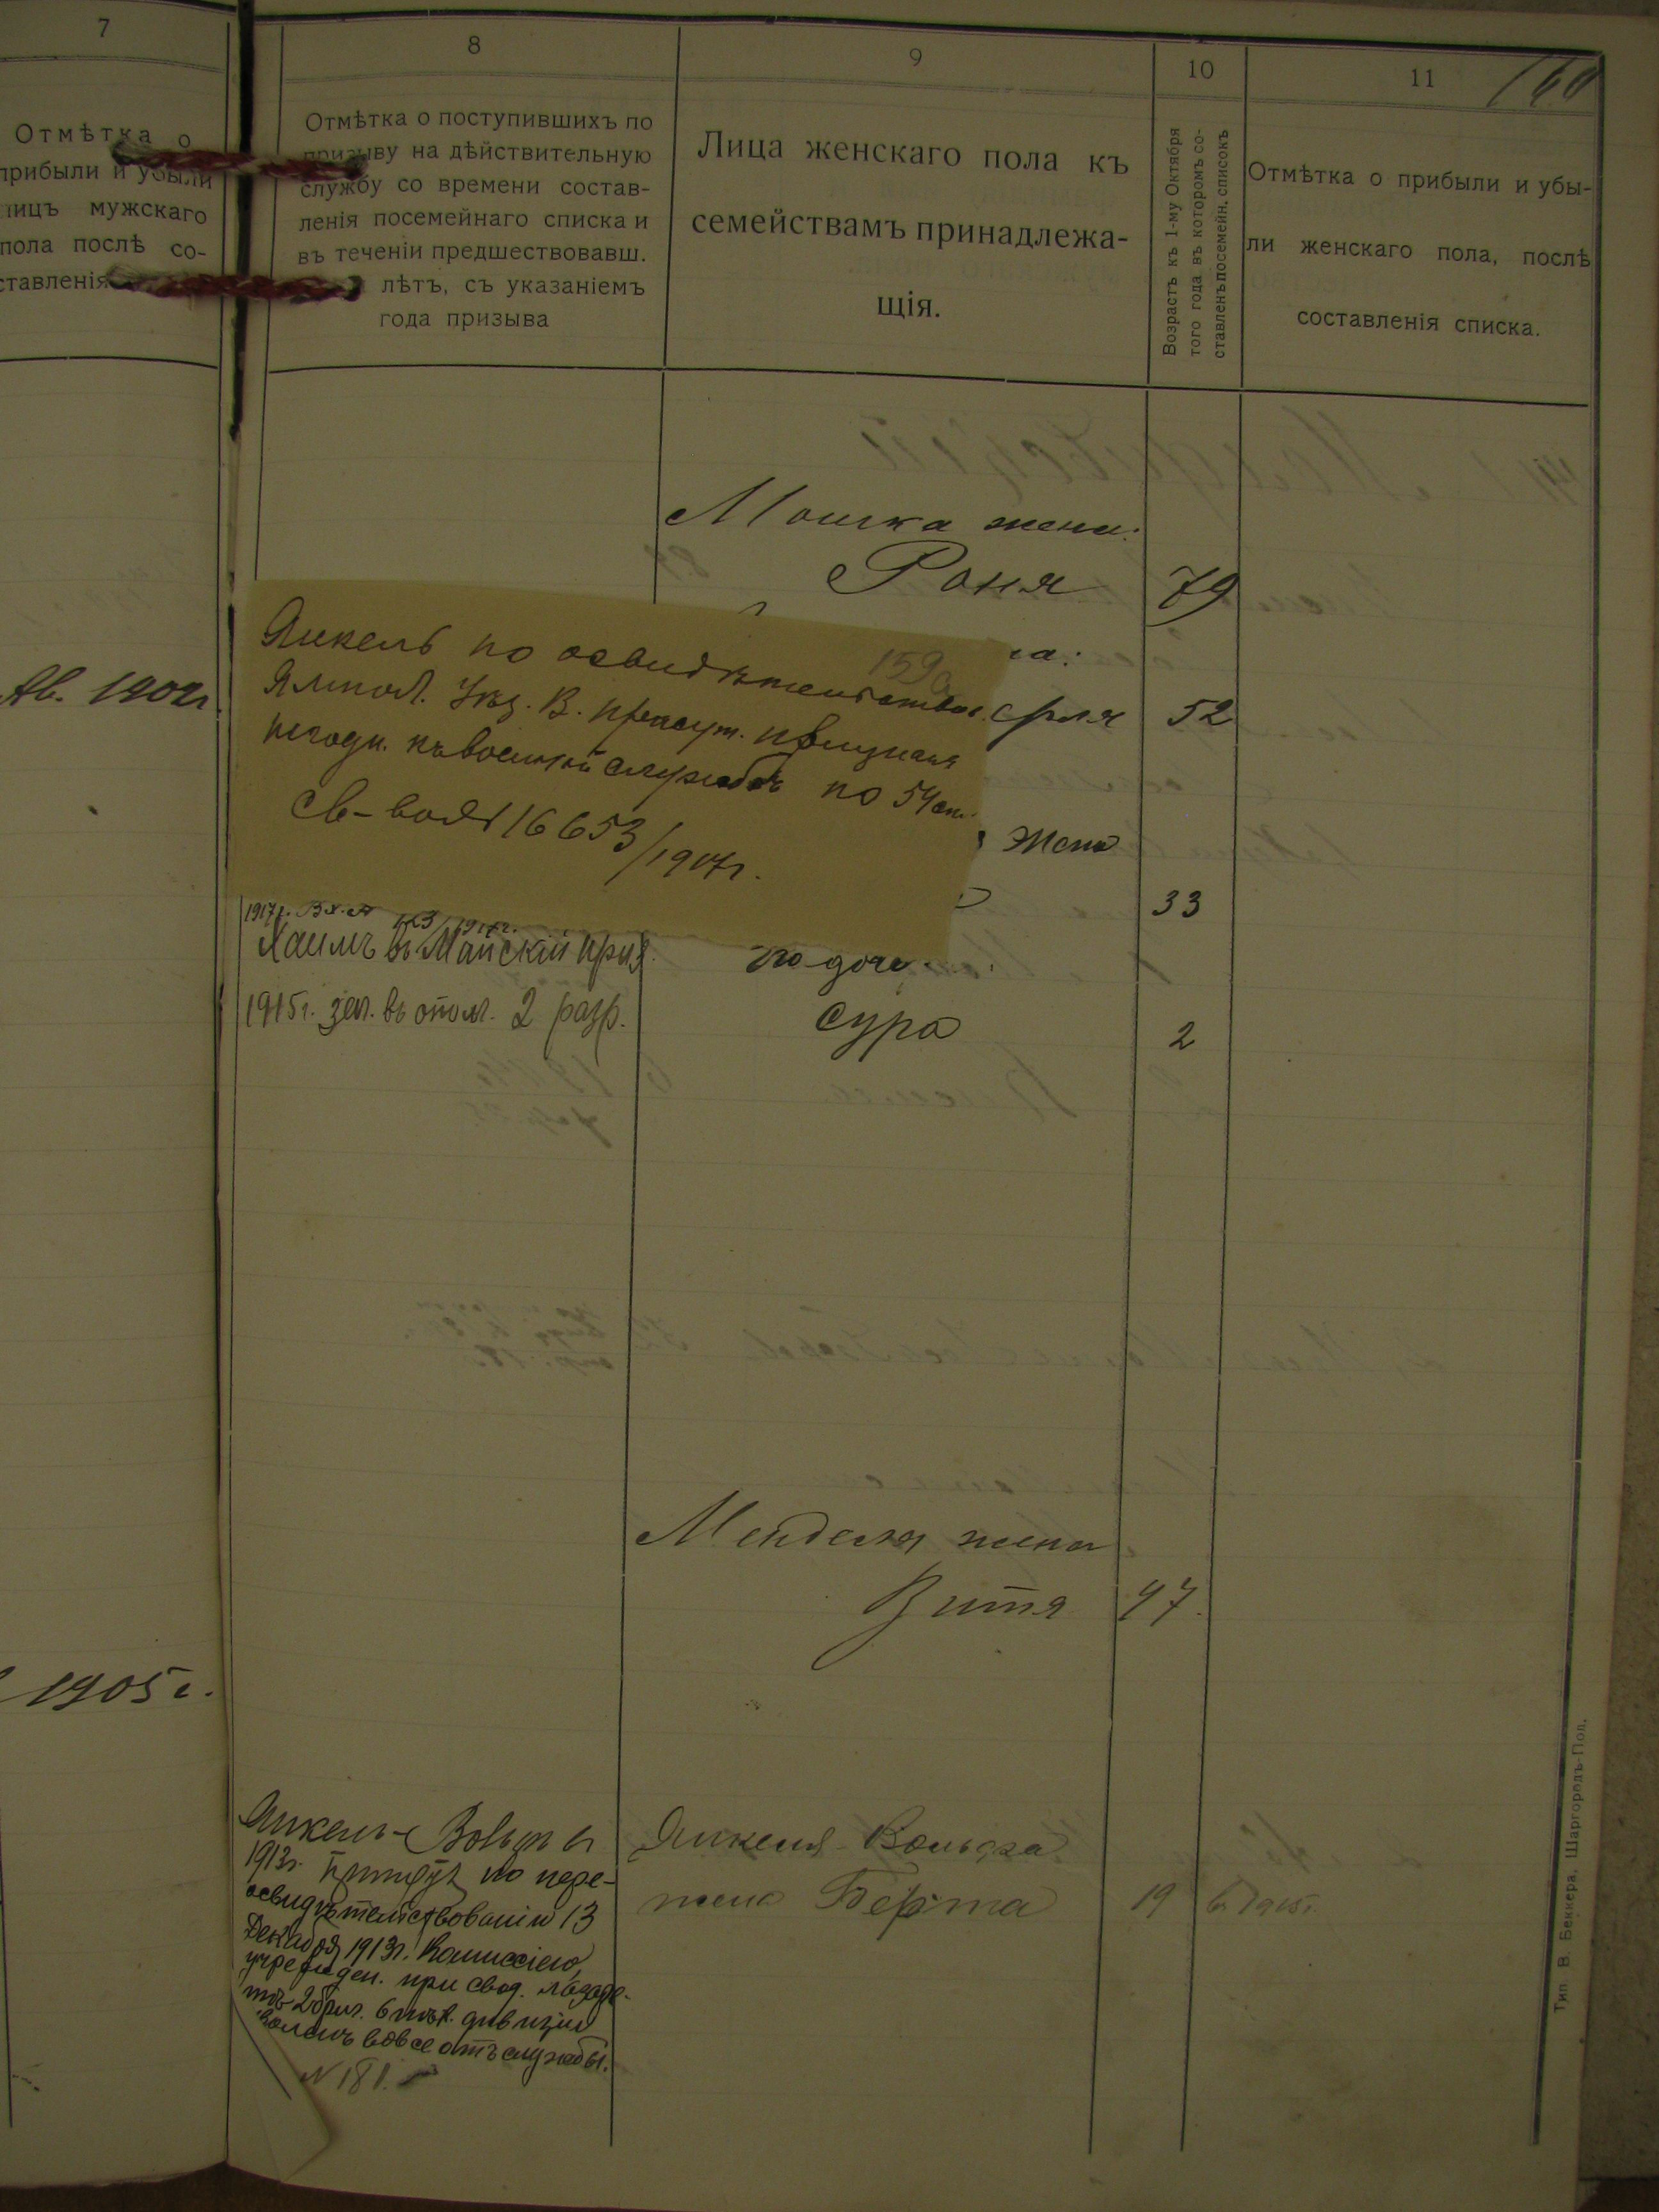 7
Отмѣтка о
прибыли и убыли
лицъ мужскаго
пола послѣ со-
ставленія
1902г.
1905г.
8
Отмѣтка о поступившихъ по
призыву на дѣйствительную
службу со времени состав-
ленія посемейнаго списка и
въ теченіи предшествовавш.
лѣтъ, съ указаніемъ
года призыва
9
Лица женскаго пола къ
семействамъ принадлежа-
щія.
10
Возрастъ къ 1-му Октября
того года въ которомъ со-
ставленъ посемейн. списокъ
11
160
Отмѣтка о прибыли и убы-
ли женскаго пола, послѣ
составленія списка.
Мошка жена:
Роня 79
159
Янкель по освидѣтельствов.
Ямпол. Уѣз. В. присут. признанъ
негодн. къ военной службѣ по 54 ст.
Св-во 16653/1917г.
52
Жена
33
1917г.
Хаимъ въ Майскій приз.
1915г. зач. въ опол. 2 разр.
его дочь.
Сура 2
Менделя жена
Витя 47.
Янкель-Вольфъ въ
1913г. принятъ по пере-
освидѣтельствованію 13
Декабря 1913г. Коммиссіею,
учрежден. при свод. лазаре-
тѣ 2 бриг. 6 пѣх. дивизіи
вовсе отъ службы.
N 181.
Янкеля-Вольфа
жена Берта 19 въ 1915г.
Тип. В. Беккера, Шаргородъ-Под.